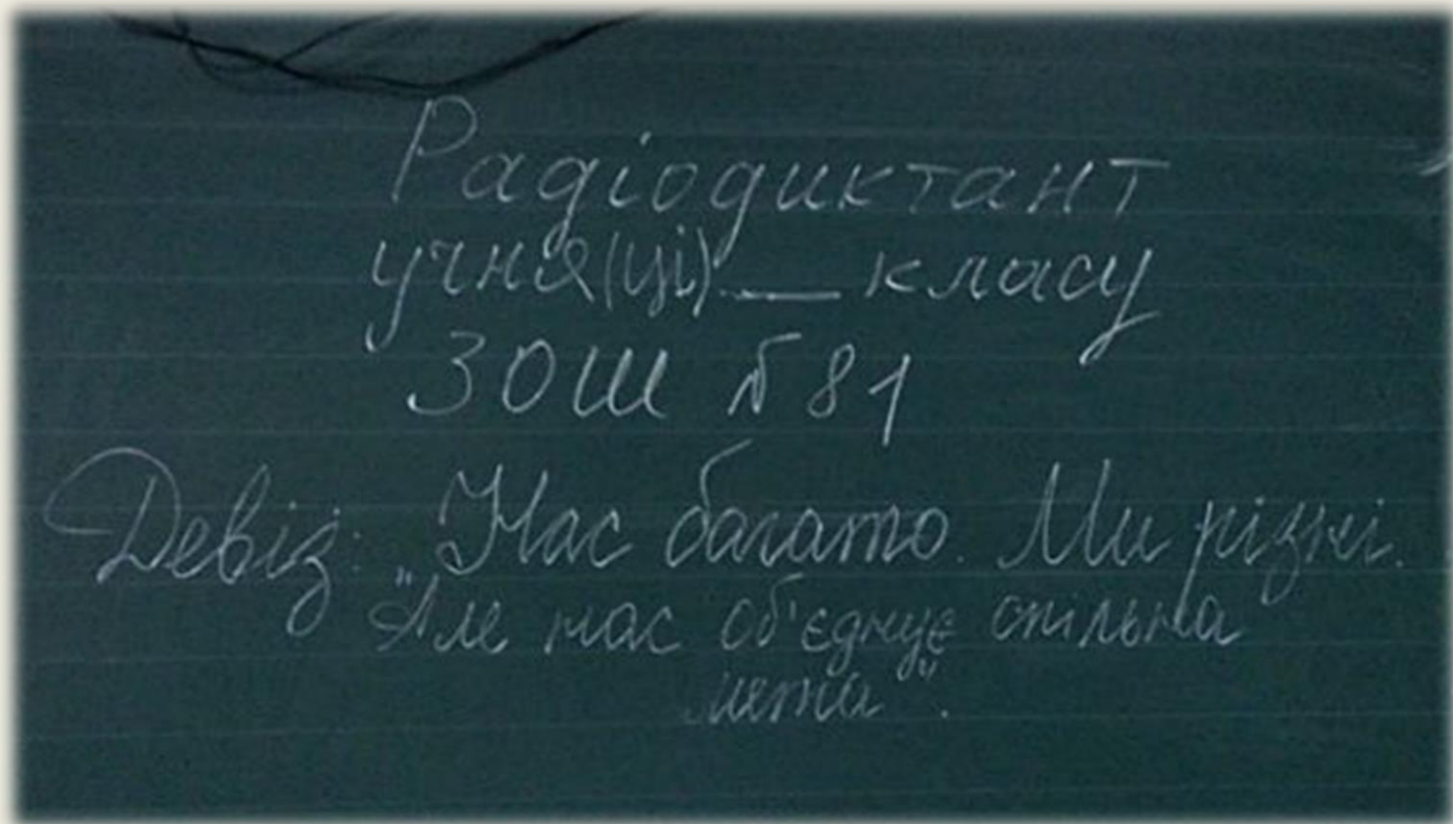 Радіодиктант
учня(ці) __ класу
ЗОШ №81
Девіз: „Нас багато. Ми різні.
Але нас об'єднує спільна
мета".